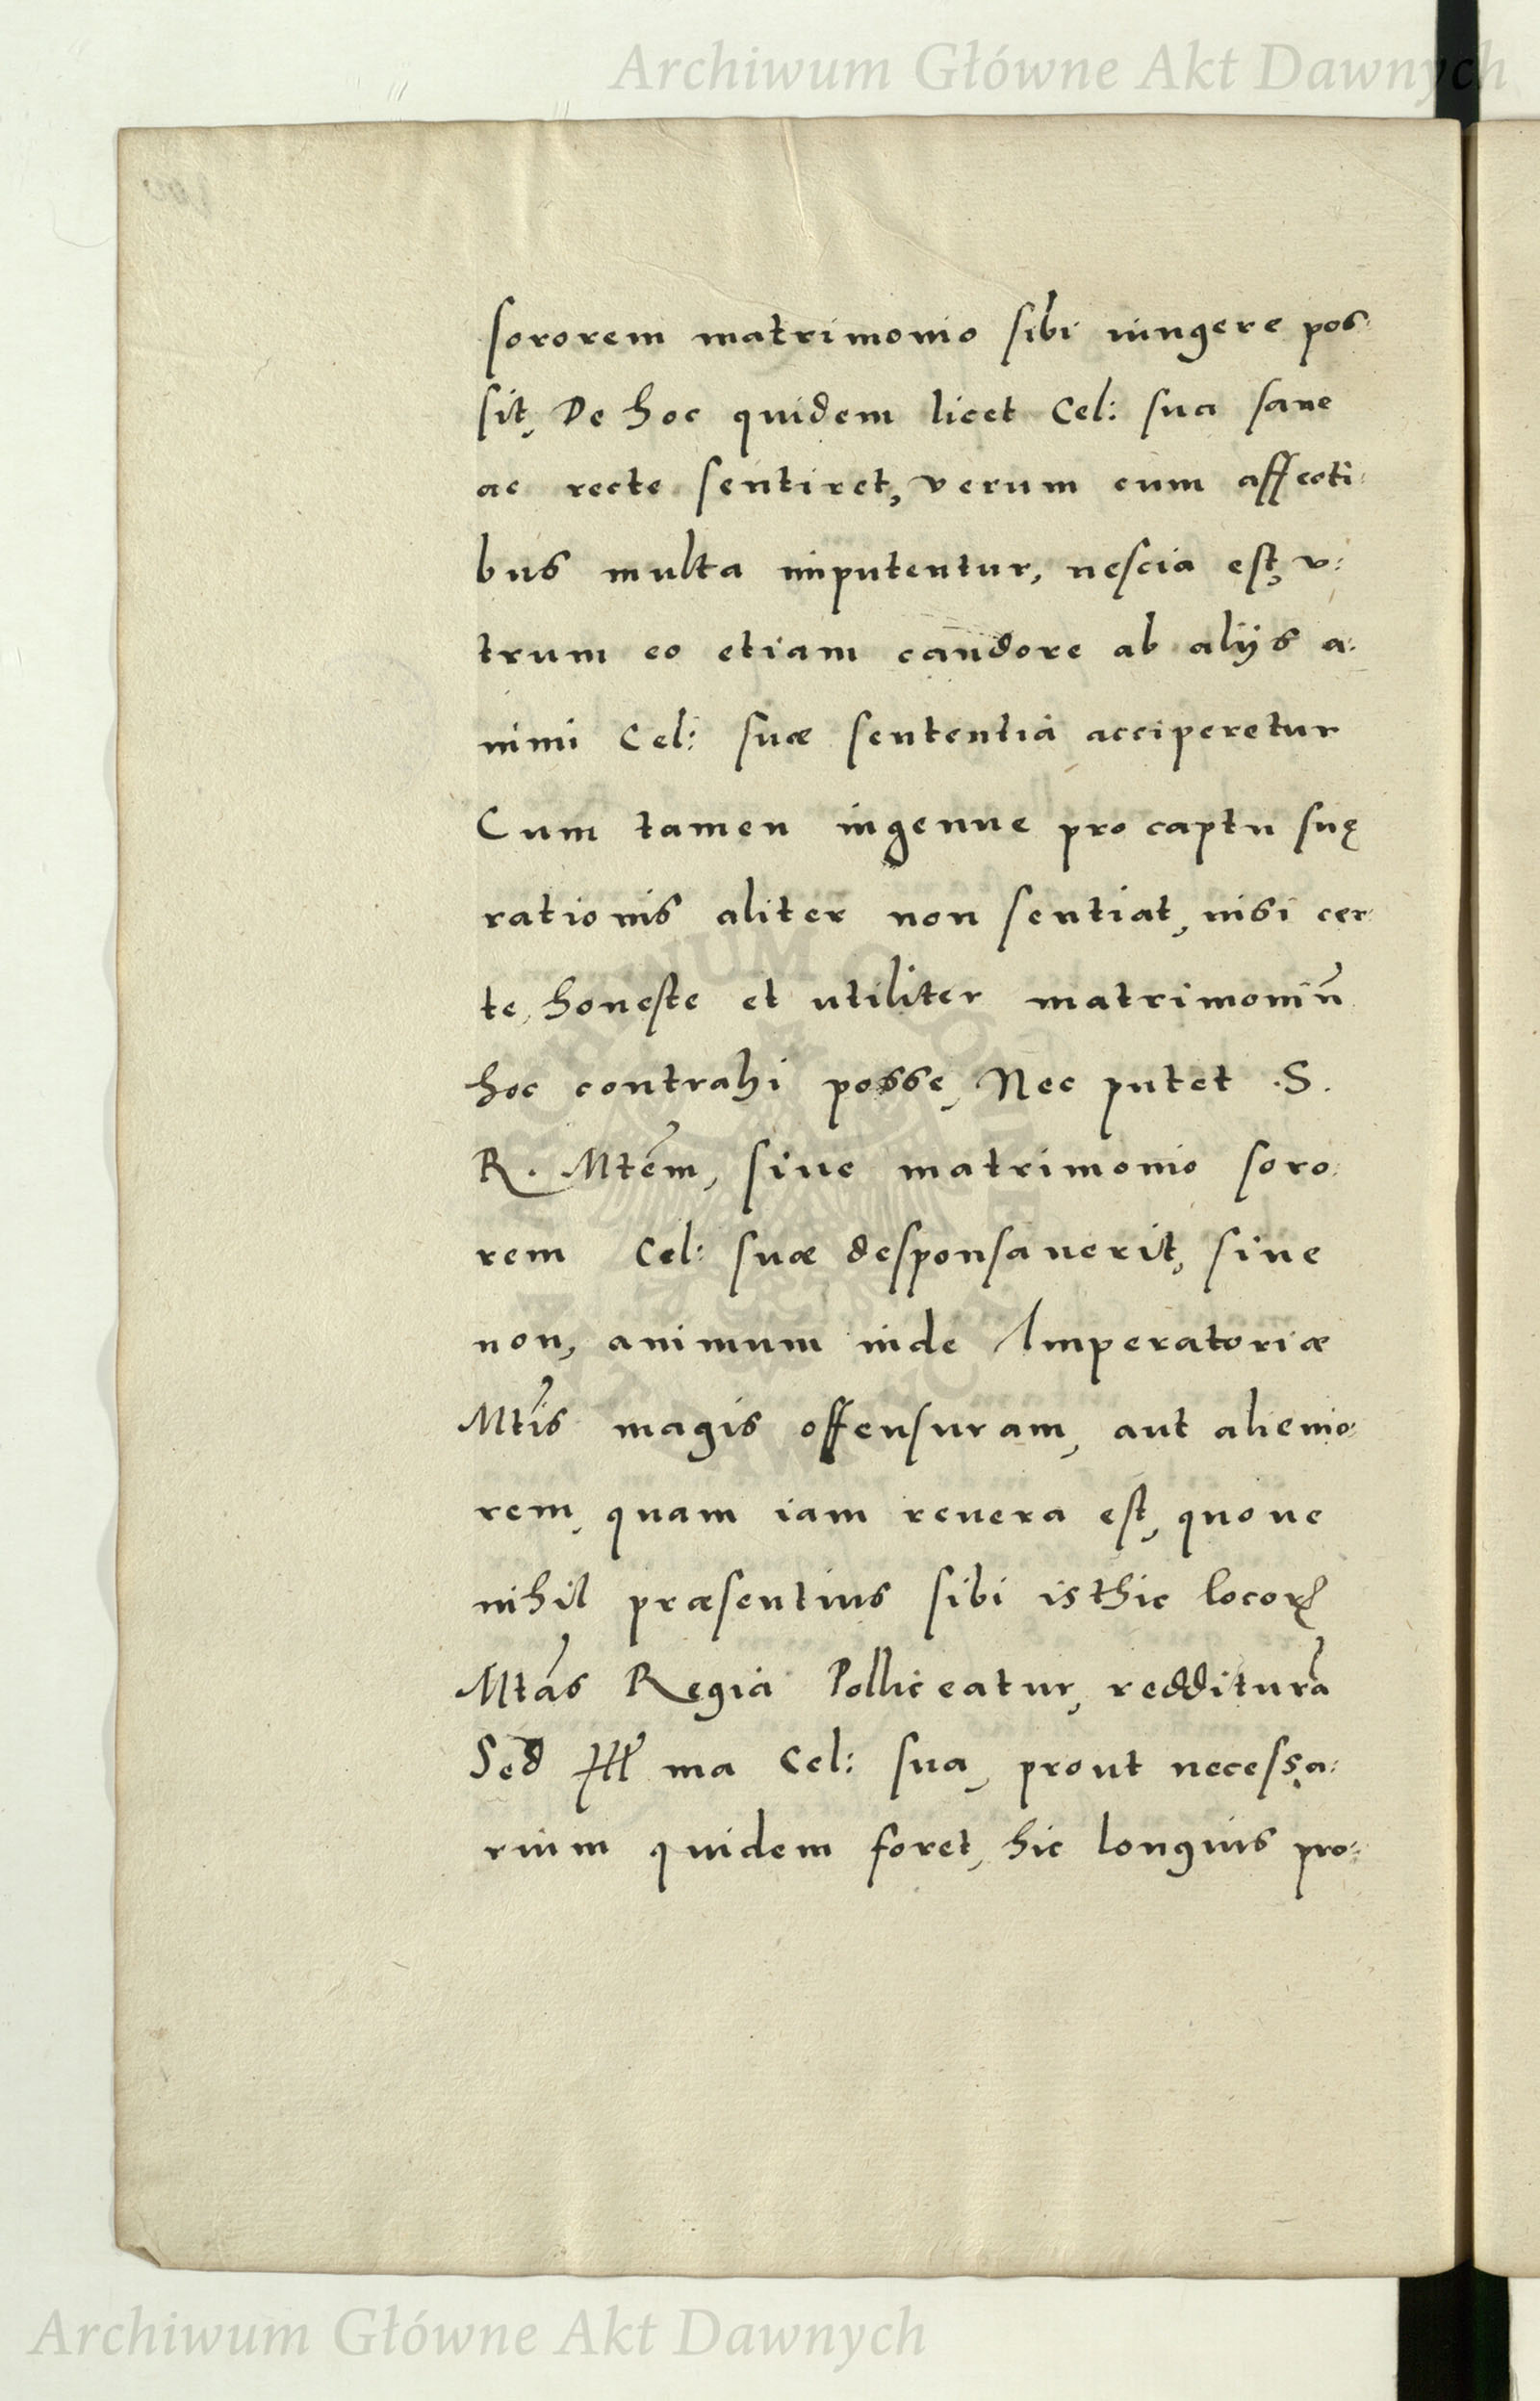 Archiwum Główne Akt Dawnych
sororem matrimonio sibi iungere pos:
sit, De hoc quidem licet Cel: sua sane
ac recte sentiret, verum cum affecti:
bus multa imputentur, nescia est, v:
trum eo etiam candore ab alijs a:
nimi Cel: suæ sententia acciperetur
Cum tamen ingenue pro captu suę
rationis aliter non sentiat, nisi cer:
te, honeste et utiliter matrimoniũ
hoc contrahi posse, Nec putet .S.
R. Mtem, siue matrimonio soro:
rem Cel: suæ desponsauerit, siue
non, animum inde Imperatoriæ
Mtis magis offensuram, aut alienio:
rem, quam iam reuera est, quoue
nihil præsentius sibi isthic locoꝝ
Mtas Regia Polliceatur, redditura
Sed Ill ma Cel: sua, prout necessa:
rium quidem foret, hic longius pro:
Archiwum Główne Akt Dawnych